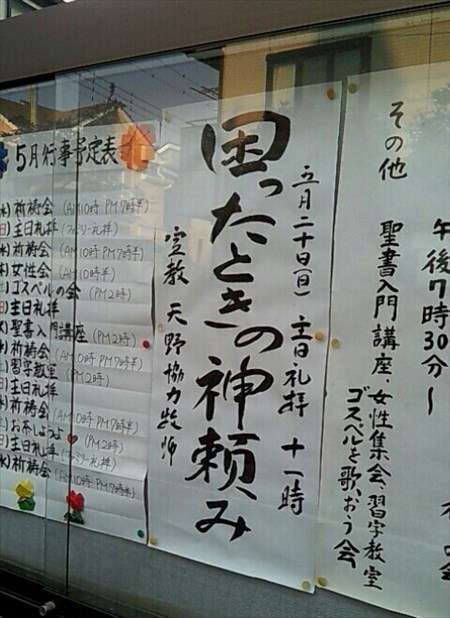 午後7時30分〜
その他 聖書入門講座、女性集会、習字教室
ゴスペルを歌おう会
五月二十日(日) 主日礼拝 十一時
困ったときの神頼み
宣教 天野協力牧師
5月行事予定表
祈祷会(AM10時 PM7時半)
主日礼拝 ファミリー礼拝
祈祷会(AM10時 PM7時半)
女性会(AM10時)
ゴスペルの会(PM2時)
主日礼拝
聖書入門講座(PM2時)
祈祷会(AM10時 PM7時半)
習字教室(PM2時)
主日礼拝
祈祷会(AM10時 PM7時半)
お茶しましょう(PM2時)
主日礼拝 ファミリー礼拝
祈祷会(AM10時 PM7時半)